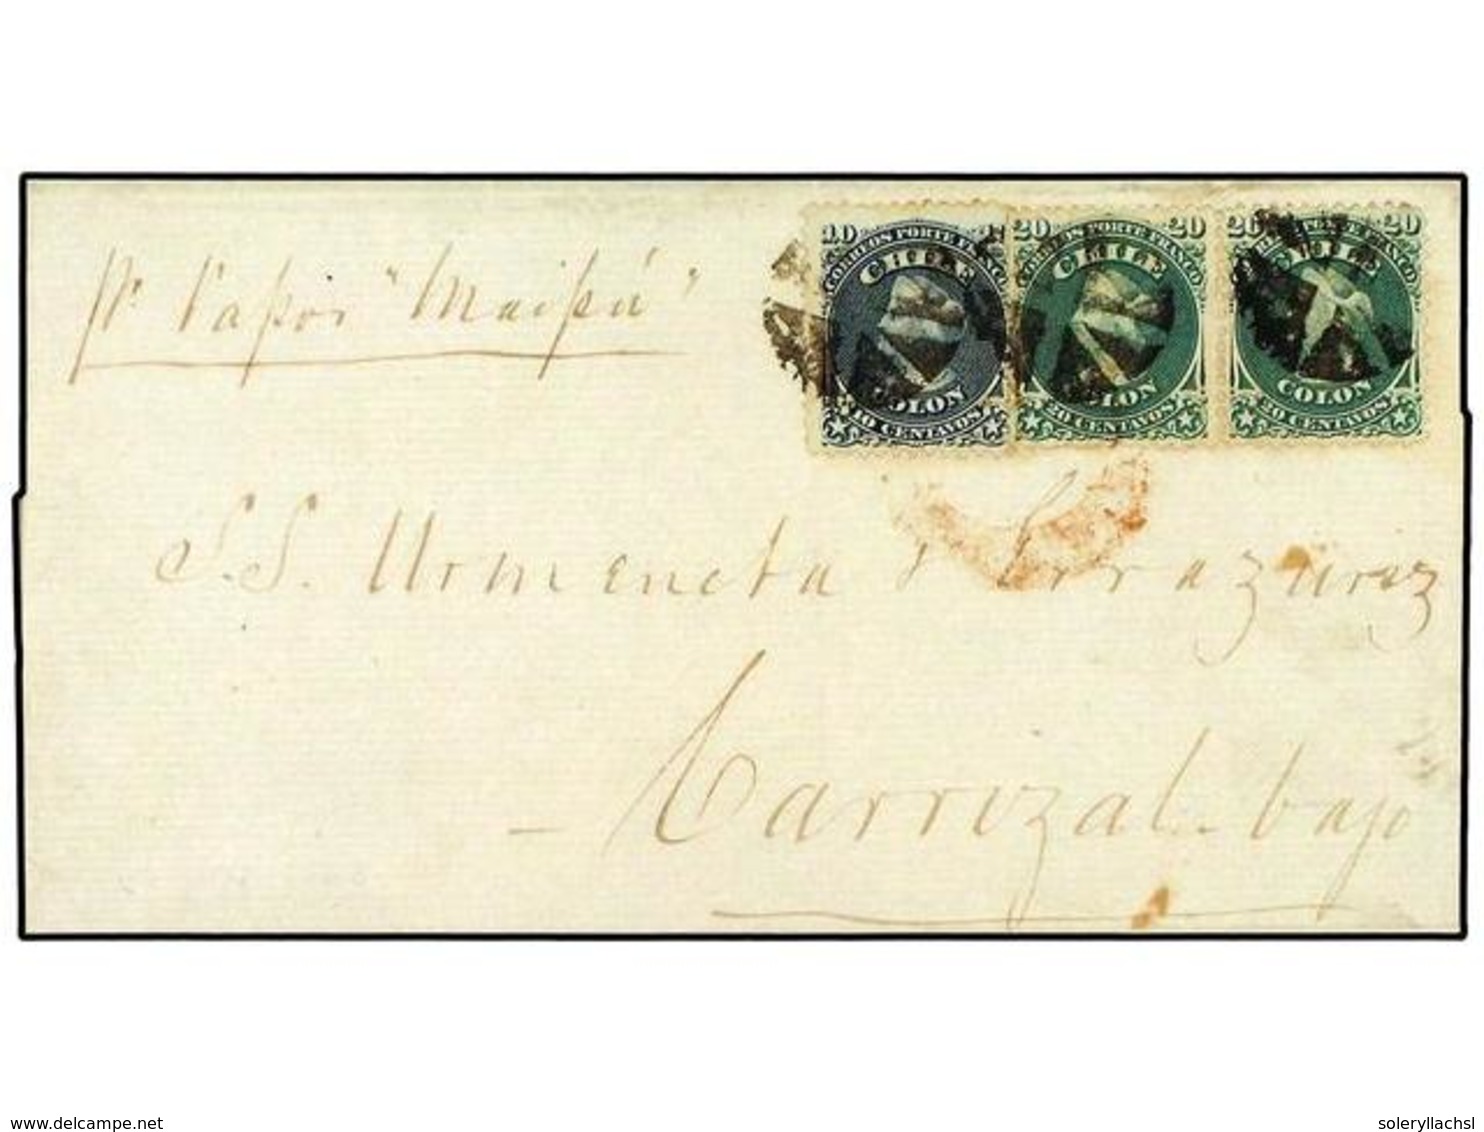 10 1
CORREOS PORTE FRANCO
CHILE
COLON
10 CENTAVOS
20 20
CORREOS PORTE FRANCO
CHILE
COLON
20 CENTAVOS
20 20
PORTE FRANCO
CHILE
COLON
20 CENTAVOS
Pr Vapor "Maipú"
S.S. Urmeneta & Errazuriz
- Carrizal-bajo
delcampe.net
soleryllachsl